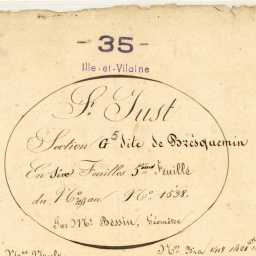 - 35 -
Ille-et-Vilaine
St. Just
Section G5 dite de Brésquemin
En Six Feuilles 5ème Feuille
du No. au No. 1538.
Par Mr. Bessin, Géomètre